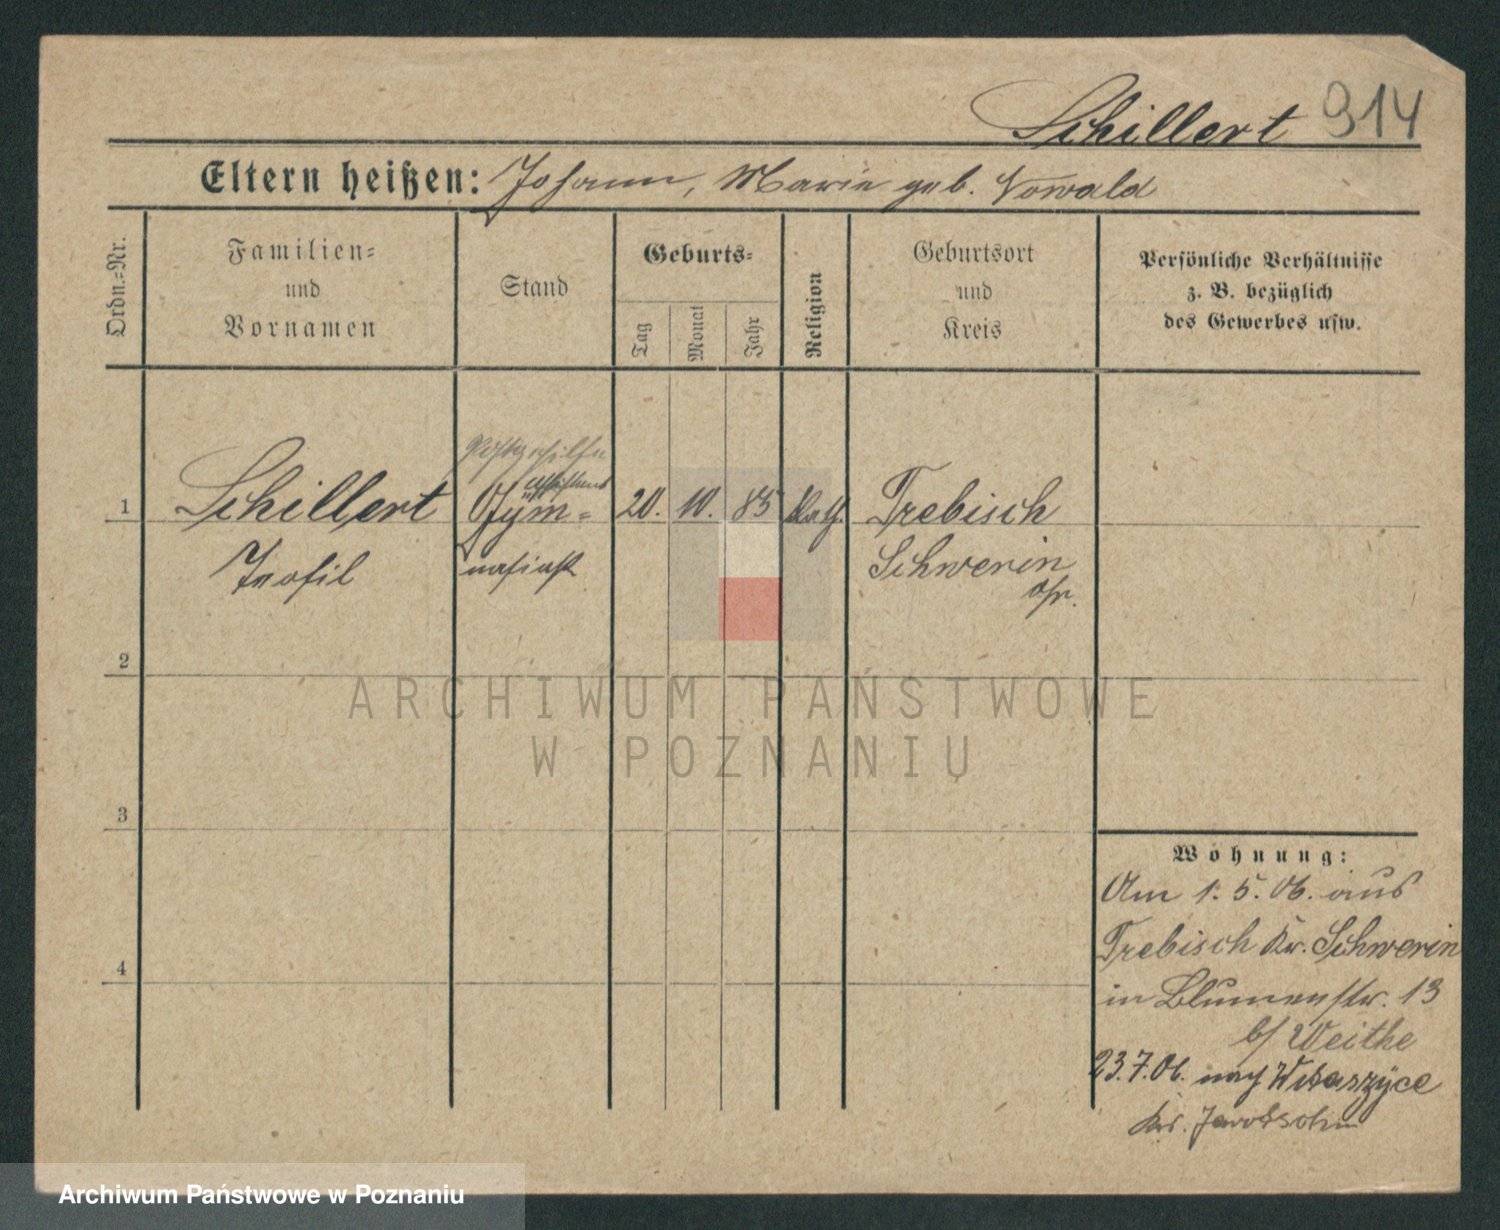 Schillert 914
Eltern heißen: Johann, Marie geb. Nowald
Ordn.=Nr.
Familien=
und
Vornamen
Stand
Geburts=
Tag
Monat
Jahr
Religion
Geburtsort
und
Kreis
Persönliche Verhältnisse
z. B. bezüglich
des Gewerbes usw.
1 Schillert Gym= 20. 10. 85 Kath. Trebisch
Teofil nasiast Schwerin
2
3
4
ARCHIWUM PAŃSTWOWE
W POZNANIU
Wohnung:
Am 1. 5. 06. aus
Trebisch Kr. Schwerin
in Blumenstr. 13
b/ Weithe
23.7.06. nach Witaszyce
Krs. Jarotschin
Archiwum Państwowe w Poznaniu